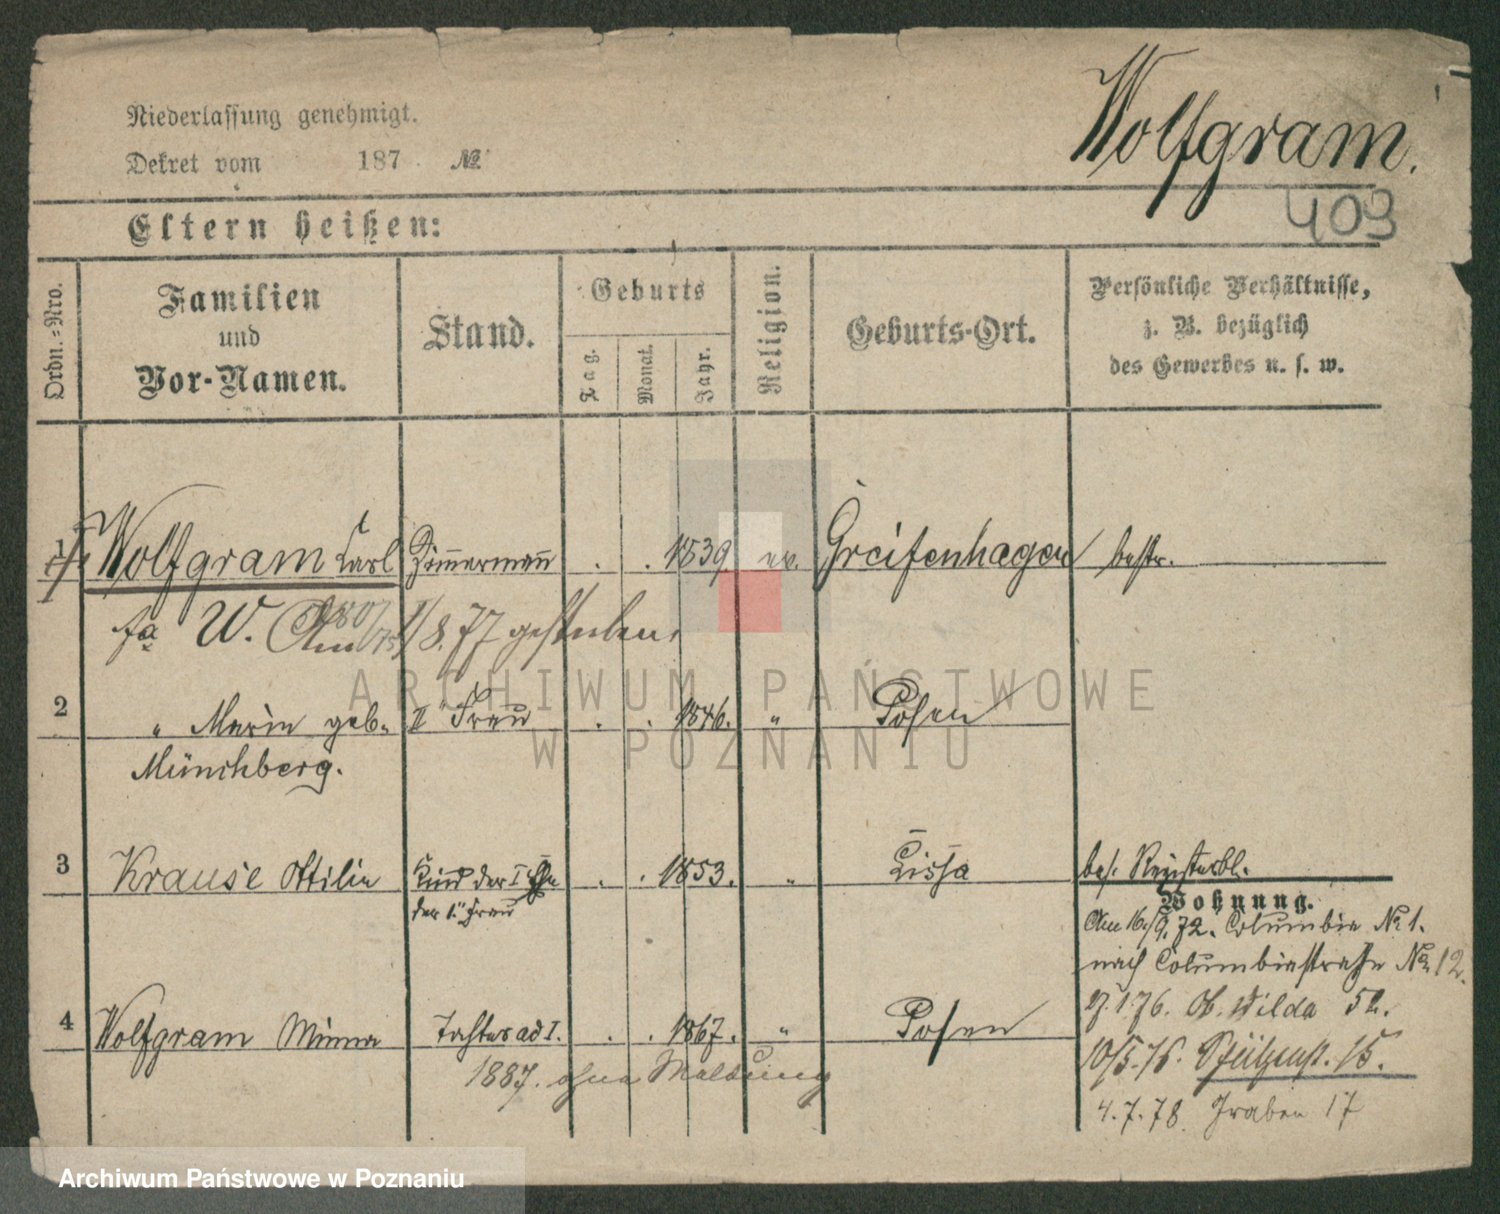 Niederlassung genehmigt.
Dekret vom 187 №
Wolfgram.
409
Eltern heißen:
Ordn.=Nro.
Familien und Vor-Namen.
Stand.
Geburts
Tag. Monat. Jahr.
Religion.
Geburts-Ort.
Persönliche Verhältnisse, z. B. bezüglich des Gewerbes u. s. w.
1 Wolfgram Carl Zimmermann . . 1839. ev. Greifenhagen bestr.
W. 1/8. 77 gestorben.
2 " Marie geb. II Frau . . 1846. " Posen
Münchberg.
3 Krause Ottilie Kind der I Ehe . . 1853. " Lissa bes. Registerbl.
der Frau
Wohnung.
Am 16/9. 72. Columbia № 1.
nach Columbiastraße № 12.
4 Wolfgram Minna Tochter ad 1. . . 1867. " Posen
1.76. Ob. Wilda 52.
1887. ohne Meldung
10/5. 76. 15.
4.7.78. Graben 17
ARCHIWUM PAŃSTWOWE
W POZNANIU
Archiwum Państwowe w Poznaniu